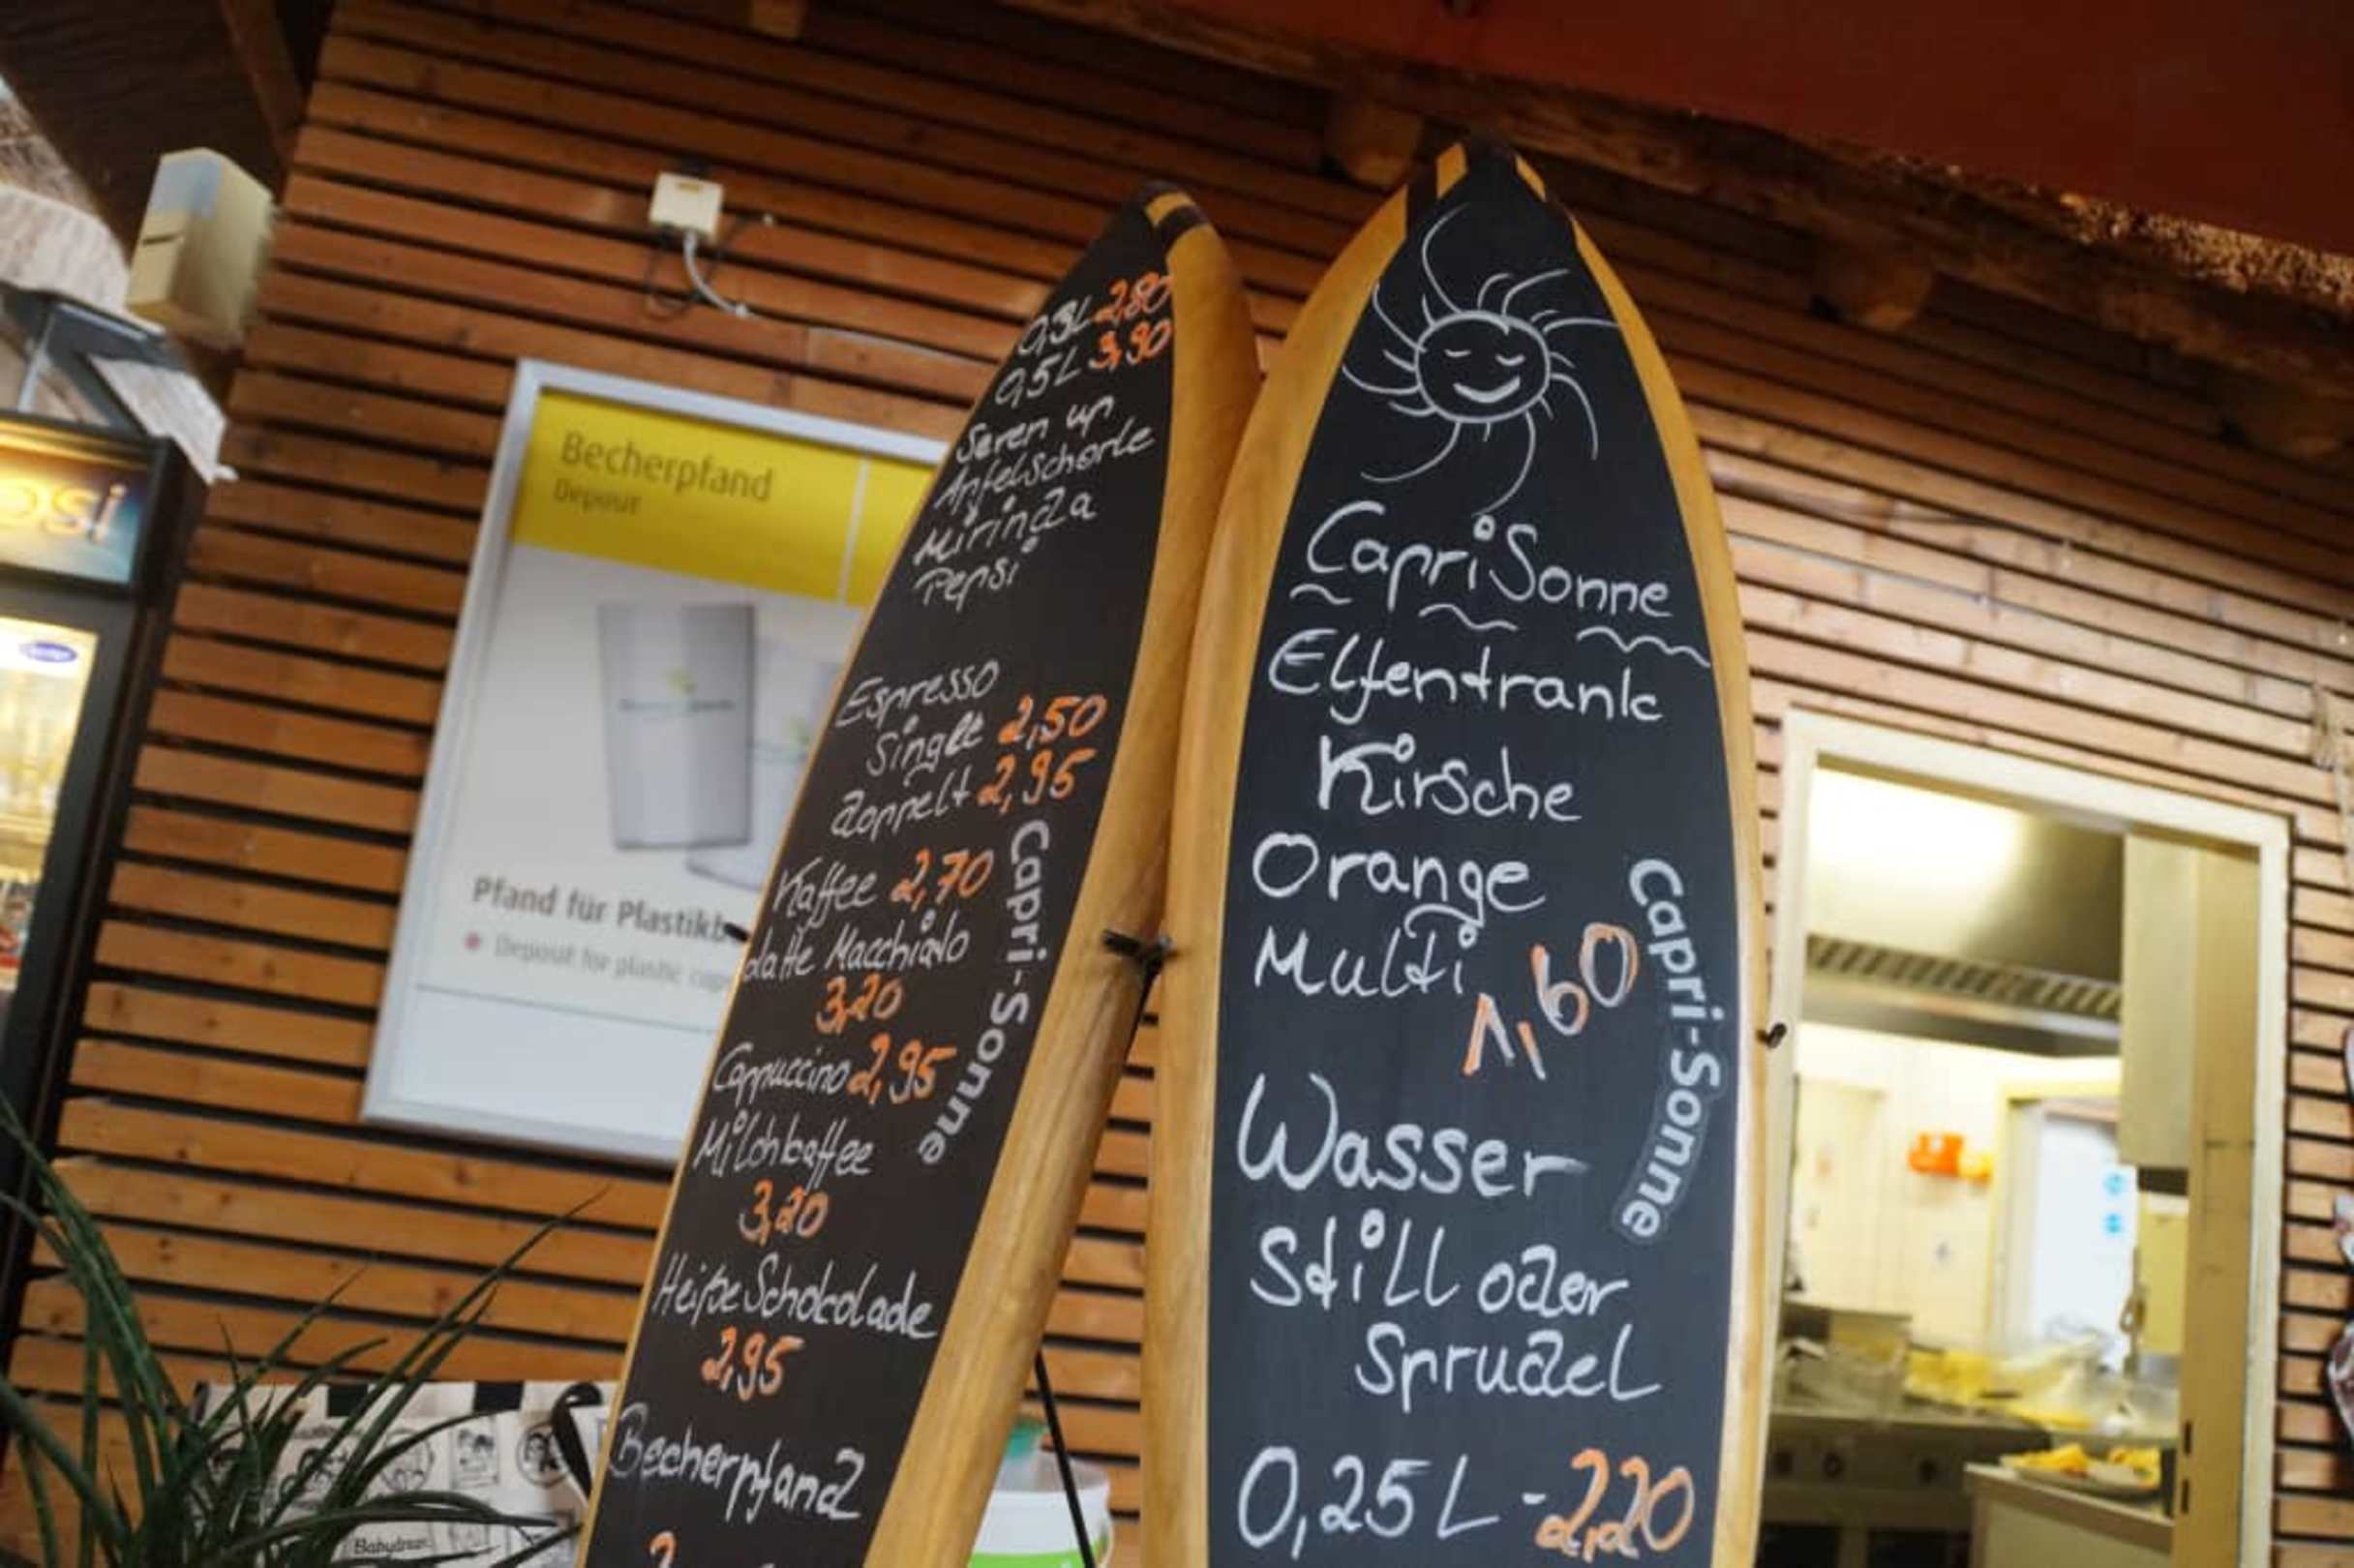 osi
Becherpfand
Deposit
Pfand für Plastikb
Deposit for plastic cups
0,3L 2,80
0,5L 3,90
Seven up
Apfelschorle
Mirinda
Pepsi
Espresso
Single 2,50
doppelt 2,95
Kaffee 2,70
Latte Macchiato
3,20
Cappuccino 2,95
Milchkaffee
3,20
Heiße Schokolade
2,95
Becherpfand
Capri-Sonne
Capri Sonne
Elfentrank
Kirsche
Orange
Multi
1,60
Capri-Sonne
Wasser
Still oder
Sprudel
0,25L - 2,20